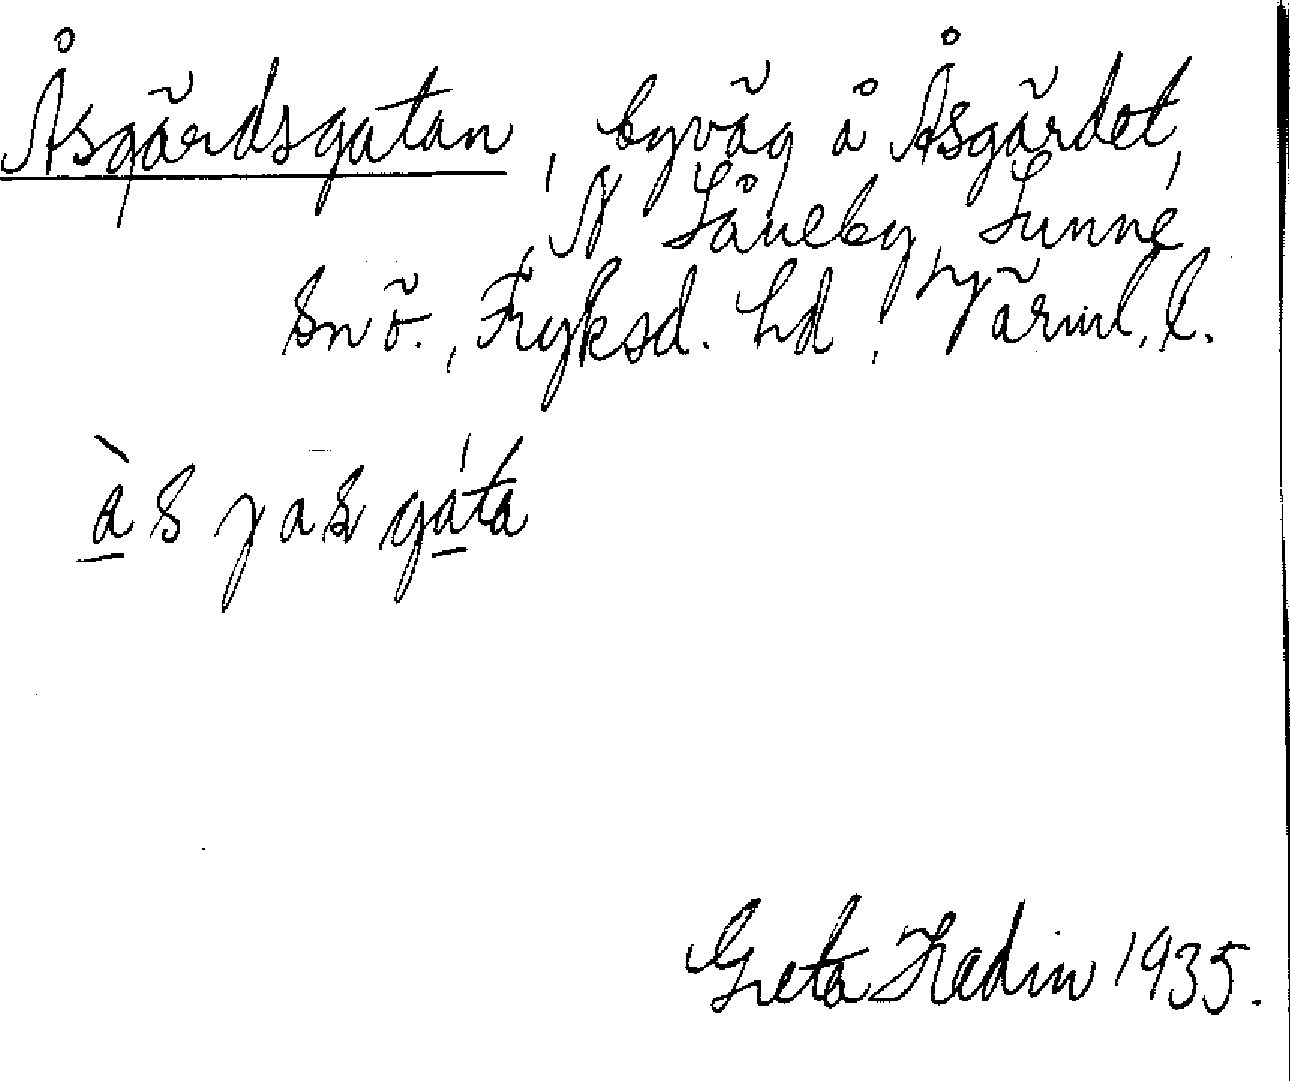 Åsgärdsgatan, byväg å Åsgärdet,
N Såneby, Sunne
sn ö., Fryksd. hd, Värml. l.
às jas gáta
Greta Hedin 1935.